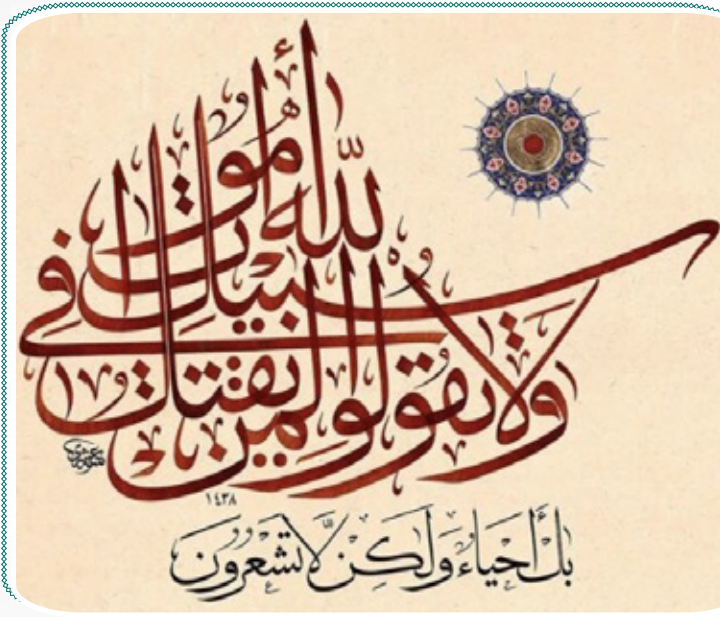 ولا تقولوا لمن يقتل في سبيل الله أموات
بل أحياء ولكن لا تشعرون
١٤٣٨